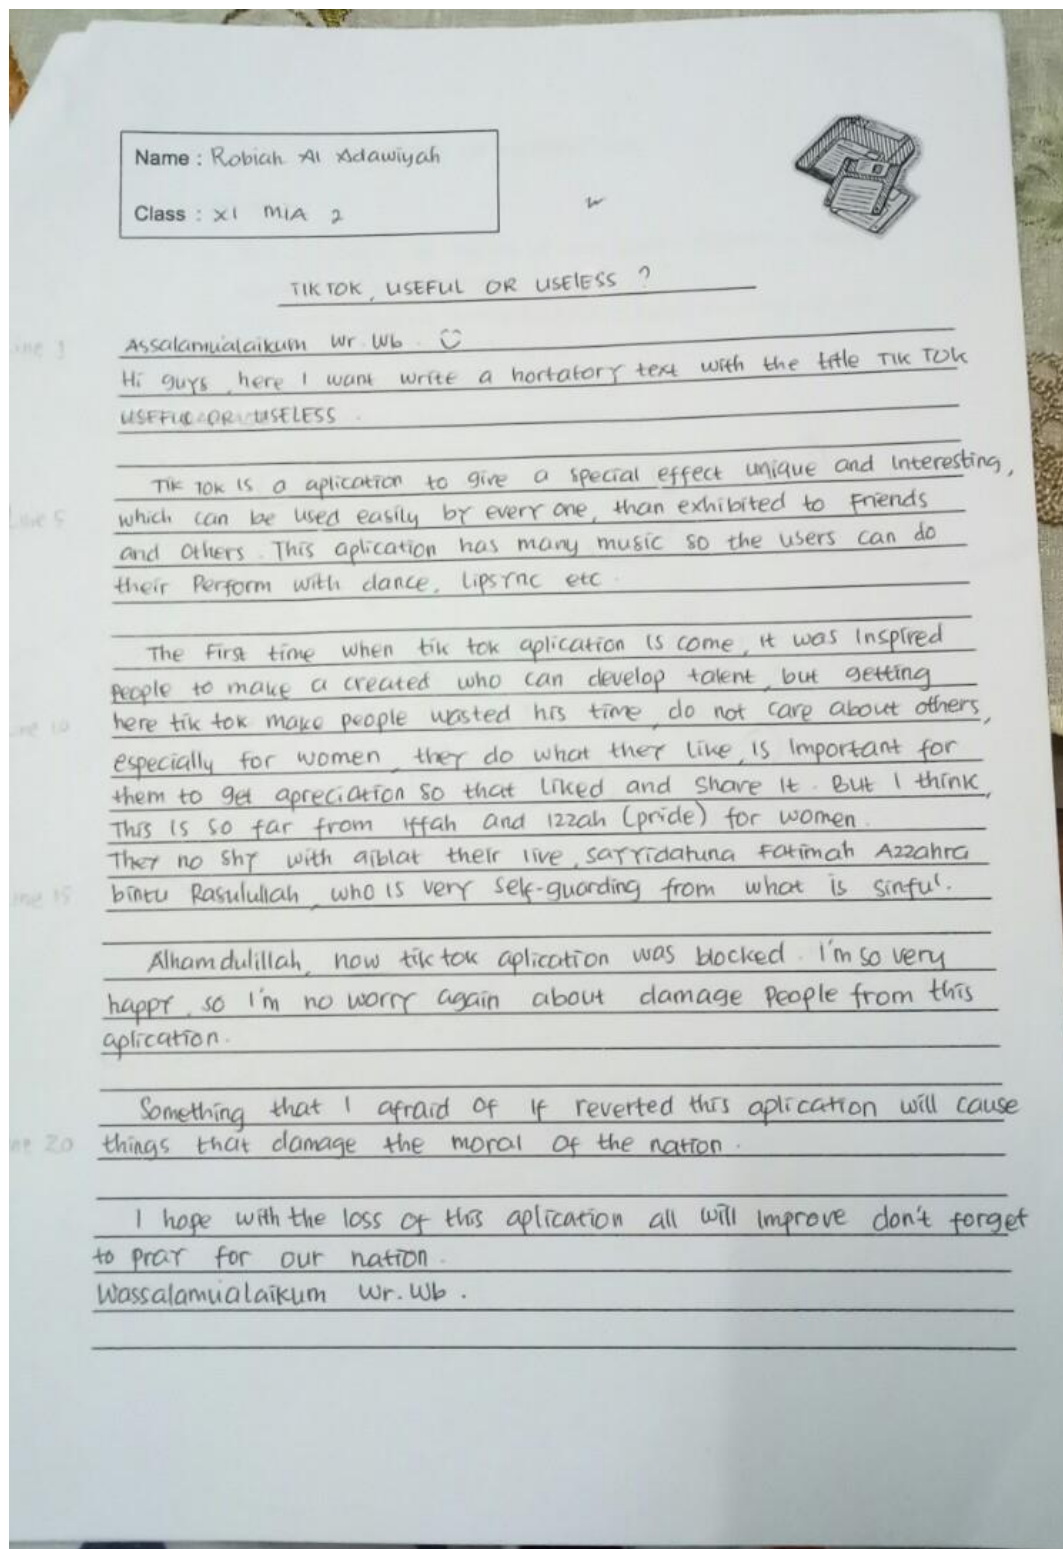 Name : Robiah Al Adawiyah
Class : XI MIA 2
TIK TOK, USEFUL OR USEless ?
Line 1
Assalamualaikum Wr. Wb.
Hi guys, here I want write a hortatory text with the title TIK TOK
USEFUL OR USELESS.
Tik Tok is a aplication to give a special effect unique and interesting,
Line 5
which can be used easily by every one, than exhibited to Friends
and others. This aplication has many music so the users can do
their Perform with dance, Lipsync etc.
The First time when tik tok aplication is come, it was Inspired
people to make a created who can develop talent, but getting
Line 10
here tik tok make people wasted his time, do not care about others,
especially for women, they do what they like, is Important for
them to get apreciation so that liked and share it. But I think,
This is so far from Iffah and Izzah (pride) for women.
They no shy with their live, Sayyidatuna Fatimah Azzahra
Line 15
bintu Rasulullah, who is very self-guarding from what is sinful.
Alhamdulillah, now tik tok aplication was blocked. I'm so very
happy, so I'm no worry again about damage people from this
aplication.
Something that I afraid of If reverted this aplication will cause
Line 20
things that damage the moral of the nation.
I hope with the loss of this aplication all will improve don't forget
to pray for our nation.
Wassalamualaikum Wr. Wb.